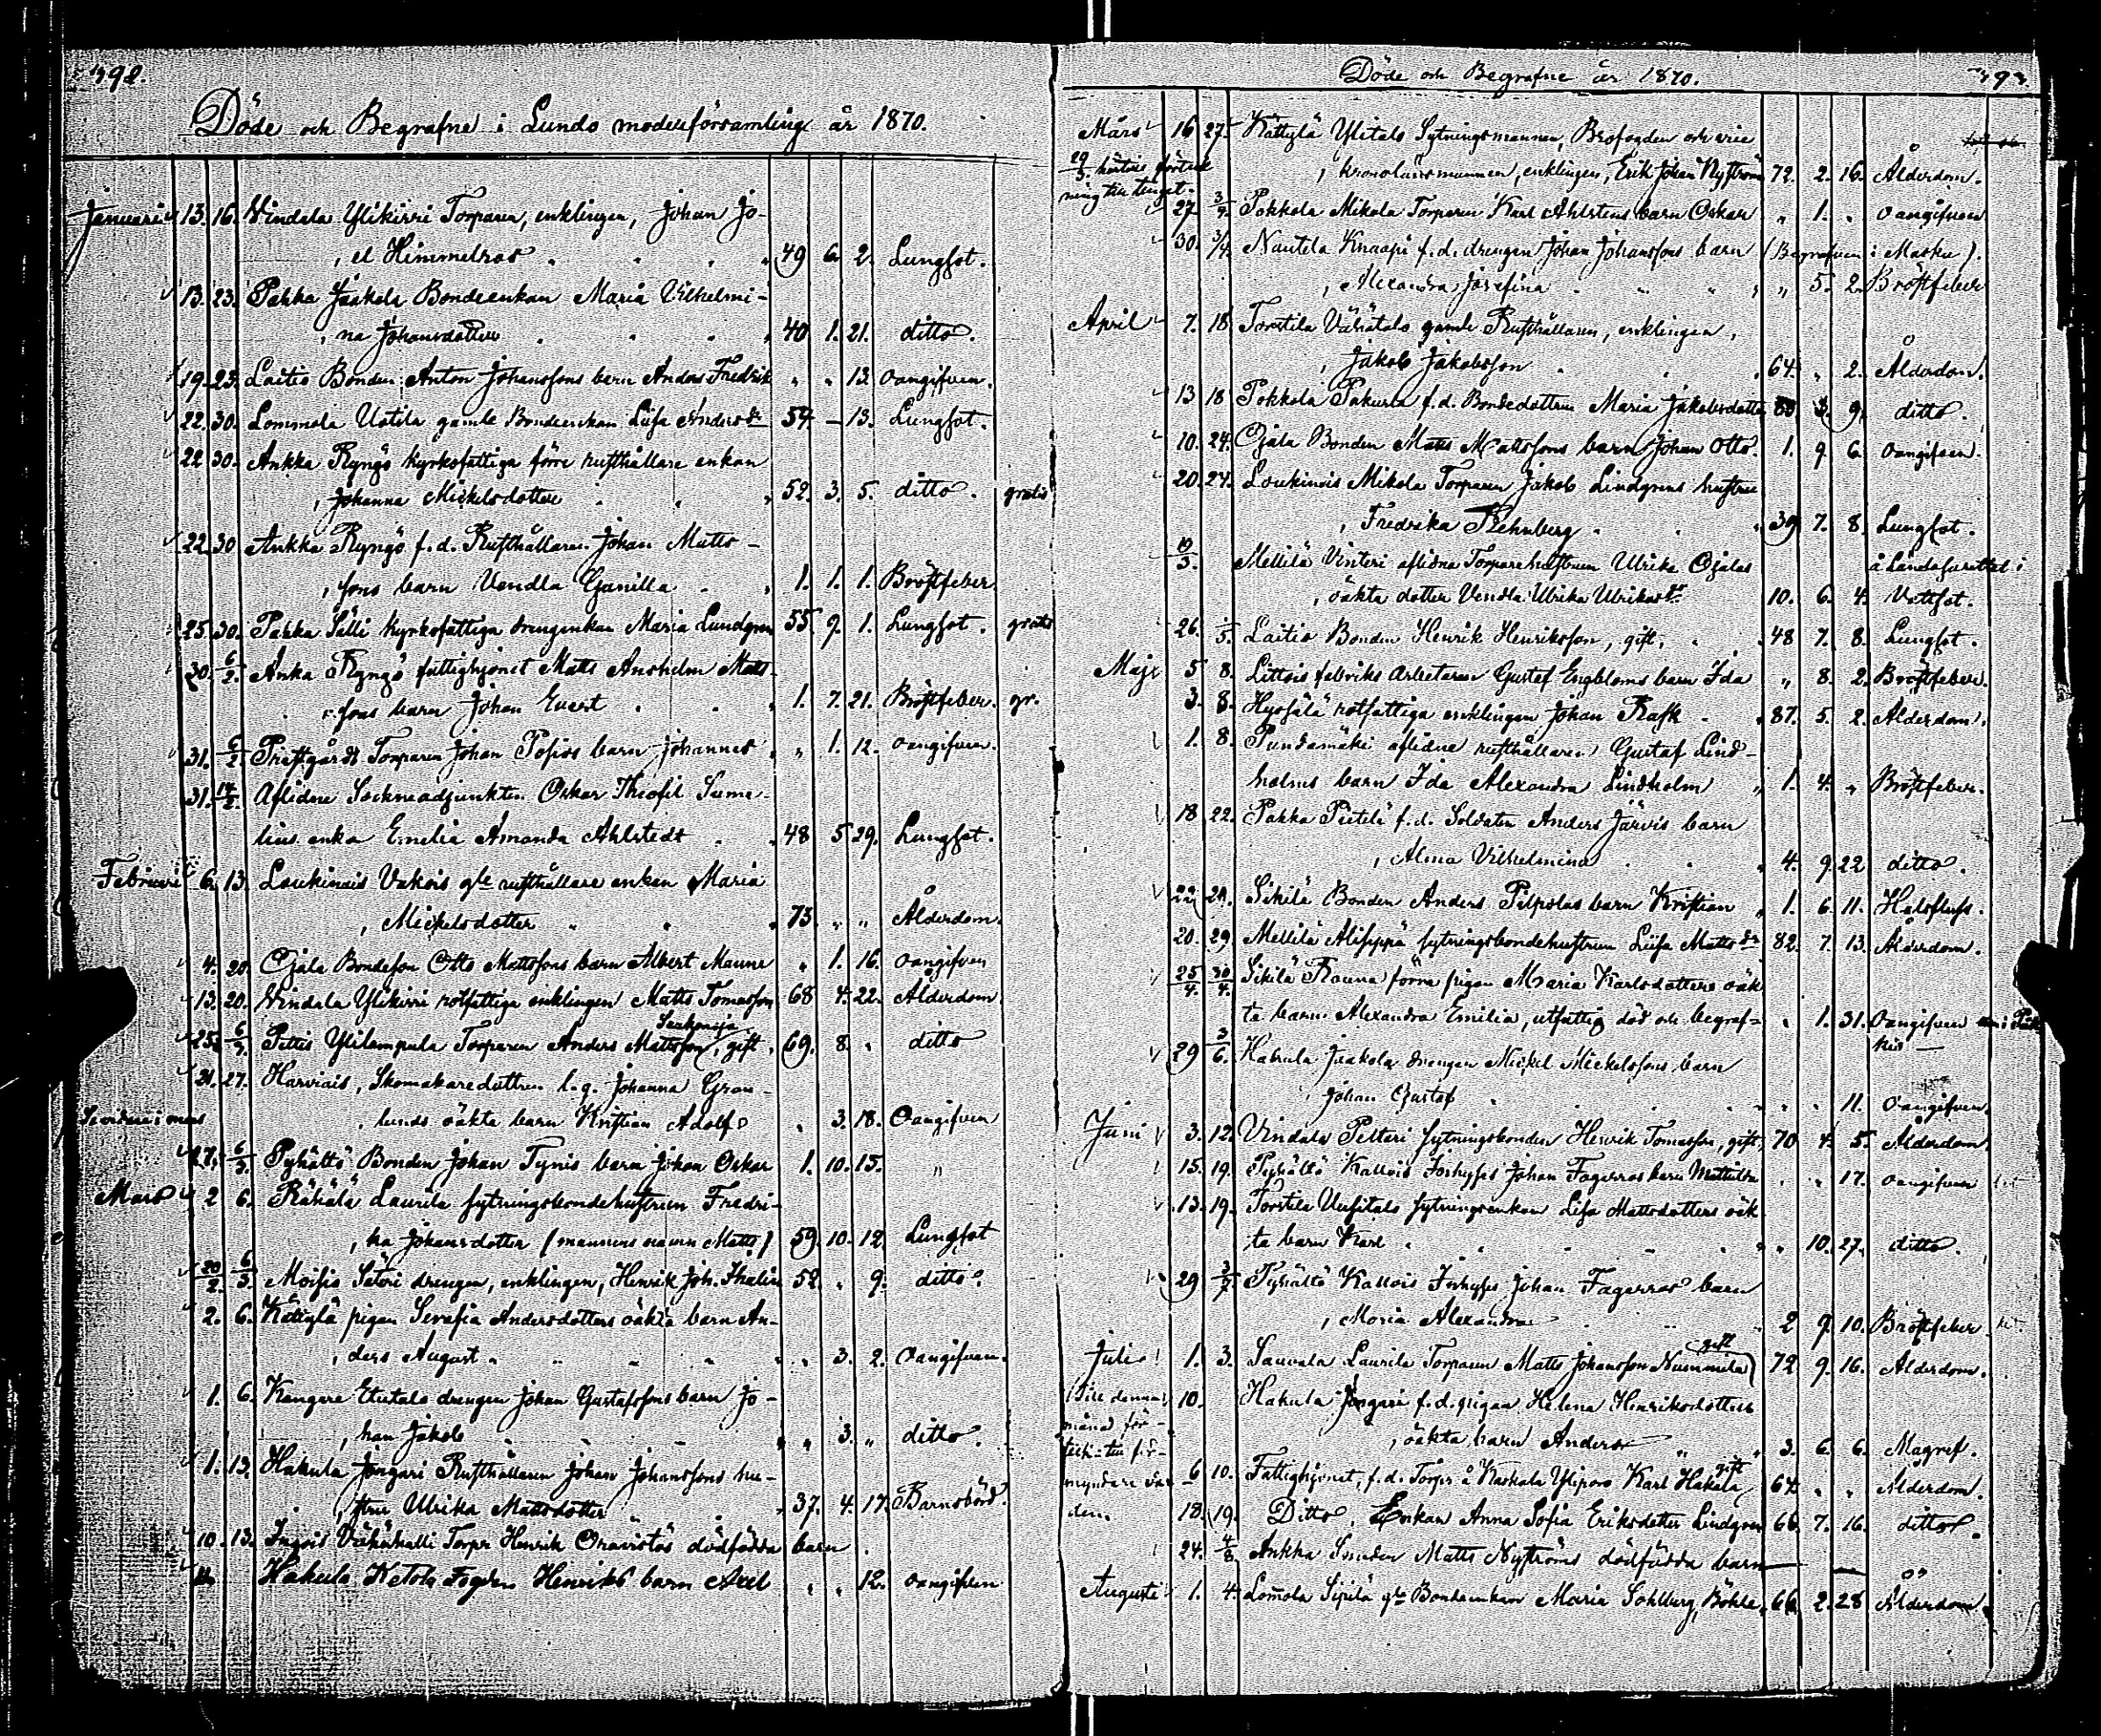 492.
Döde och Begrafne i Lundo moderförsamling år 1870.
Januari 13. 16. Vindala Ylikirri Torparen, enklingen, Johan Jo-
el Himmelros 49 6. 2. Lungsot.
13. 23. Pakka Jaakola Bondeenkan Maria Vilhelmi-
na Johansdotter 40 1. 21. ditto.
19. 23. Laitio Bonden Anton Johanssons barn Anders Fredrik " " 13. Oangifven.
22. 30. Lommola Uotila gamle Bondeenkan Lisa Andersdr 54 – 13. Lungsot.
22 30. Ankka Ryngö kyrkofattiga förre rusthållare enkan
Johanna Mickelsdotter 52. 3. 5. ditto. gratis
22. 30 Ankka Ryngö f.d. Rusthållaren Johan Matts-
sons barn Vendla Gunilla 1. 1. 1. Bröstfeber.
25. 30. Pakka Sälli kyrkofattiga drengenkan Maria Lundgren 55. 9. 1. Lungsot. gratis
30. 6/2. Anka Ryngö fattighjonet Matts Anshelm Matts-
sons barn Johan Evert 1. 7. 21. Bröstfeber. gr.
31. 6/2. Prästgårds Torparen Johan Pojios barn Johannes " 1. 12. oangifven.
31. 14/2. Aflidne Sockneadjunkten Oskar Theofil Sume-
lius enka Emelia Amanda Ahlstedt 48 5 29. Lungsot.
Februari 6. 13. Loukinais Vakois gle rusthållare enkan Maria
Mickelsdotter 73. " " Ålderdom.
4. 20. Ojala Bondeson Otto Mattssons barn Albert Maune " 1. 16. oangifven
13. 20. Vindala Ylikirri rotfattiga enklingen Matts Tomasson 68 4. 22. Ålderdom
25. 6/3. Pettis Ylilempula Torparen Anders Mattsson, gift 69. 8. " ditto
21. 27. Harviais, Skomakaredottren l.q. Johanna Gran-
lunds oäkta barn Kristian Adolf " 3. 18. Oangifven
27. 6/3. Pyhältö Bonden Johan Tynis barn Johan Oskar 1. 10. 15. "
Mars 2 6. Rähälä Laurila sytningsbondehustrun Fredri-
ka Johansdotter (mannens namn Matts) 59. 10. 12. Lungsot
20/2. 6/3. Moisio Säteri drengen, enklingen, Henrik Joh. Thalin 52. " 9. ditto.
2. 6. Kättylä pigan Serafia Andersdotters oäkta barn An-
ders August " 3. 2. Oangifven.
1. 6. Kangare Etutalo drengen Johan Gustafssons barn Jo-
han Jakob " 3. " ditto.
1. 13. Hakula Jongari Rusthållaren Johan Johanssons hu-
stru Ulrika Mattsdotter 37. 4. 17. Barnsbörd.
10. 13. Ingois Vähähalli Torpr Henrik Oravistös dödfödda barn
Hakula Ketola Fogden Henriks barn Axel " " 12. oangifven
Döde och Begrafne år 1870. 493.
Mars 16 27. Kättylä Ylitalo Sytningsmannen, Brofogden och vice
kronolänsmannen, enklingen, Erik Johan Nyström 72. 2. 16. Ålderdom.
27. 3/4. Pokkola Mikola Torparen Karl Ahlstens barn Oskar " 1. " oangifven
30. 3/4. Nautila Knaapi f.d. drengen Johan Johanssons barn (Begrafven i Masku).
Alexandra Josefina " 5. 2. Bröstfeber
April 7. 18. Tortila Vähätalo gamle Rusthållaren, enklingen,
Jakob Jakobsson 64. " 2. Ålderdom.
13 18 Pokkola Pakurla f.d. Bondedottren Maria Jakobsdotter 9. ditto.
10. 24. Ojala Bonden Matts Mattssons barn Johan Otto. 1. 9. 6. oangifven.
20. 24. Loukinais Mikola Torparen Jakob Lindgrens hustru
Fredrika Rehnberg 39 7. 8. Lungsot.
19/3. Mellilä Vinteri aflidna Torparehustrun Ulrika Ojalas å Landslasarettet i
oäkta dotter Vendla Ulrika Ulriksdr 10. 6. 4. Vattsot.
26. Laitio Bonden Henrik Henriksson, gift, 48 7. 8. Lungsot.
Maji 5 8. Littois fabriks Arbetaren Gustaf Engbloms barn Ida " 8. 2. Bröstfeber.
3. 8. Hyssälä rotfattiga enklingen Johan Rask 87. 5. 2. Ålderdom.
1. 8. Pundamäki aflidne rusthållaren Gustaf Lind-
holms barn Ida Alexandra Lindholm 1. 4. " Bröstfeber.
18 22. Pakka Pietilä f.d. Soldaten Anders Järvis barn
Alma Vilhelmina 4. 9. 22 ditto.
22 29. Sikilä Bonden Anders Pilpolas barn Kristian 1. 6. 11. Halsfluss.
20. 29. Mellilä Alisippä sytningsbondehustrun Lisa Mattsdr 82. 7. 13. Ålderdom.
25/4. 30/4. Sikilä Rauna förra pigan Maria Karlsdotters oäk-
ta barn Alexandra Emilia, utfattig död och begraf- " 1. 31. Oangifven
29 3/6. Hakula Jaakola drengen Mickel Mickelssons barn
Johan Gustaf " " 11. oangifven.
Juni 3. 12. Vindala Peltari sytningsbonden Henrik Tomasson, gift, 70 4. 5. Ålderdom
15. 19. Pyhältö Kallois Inhyses Johan Fagerros barn Mathilda " " 17. oangifven
13. 19. Tortila Uusitalo sytningsenkan Lisa Mattsdotters oäk-
ta barn Karl " 10. 27. ditto.
29 3/7. Pyhältö Kallois Inhyses Johan Fagerros barn
Maria Alexandra 2 9. 10. Bröstfeber
Juli 1. 3. Sauvala Laurila Torparen Matts Johansson Nummila gift 72 9. 16. Ålderdom.
10. Hakula Jongari f.d. pigan Helena Henriksdotters
oäkta barn Anders 3. 6. 6. Magref.
6 10. Fattighjonet, f.d. Torpr å Kaskala Ylipavo Karl Hakala gift 64 " " Ålderdom.
18. 19. Ditto, Enkan Anna Sofia Eriksdotter Lindgren 66. 7. 16. ditto
24. 4/8 Ankka Smeden Matts Nyströms dödfödda barn
Augusti 1. 4. Lom̄ola Sipilä gle Bondeenkan Maria Sohlberg, Böhle 66 2. 28 Ålderdom.